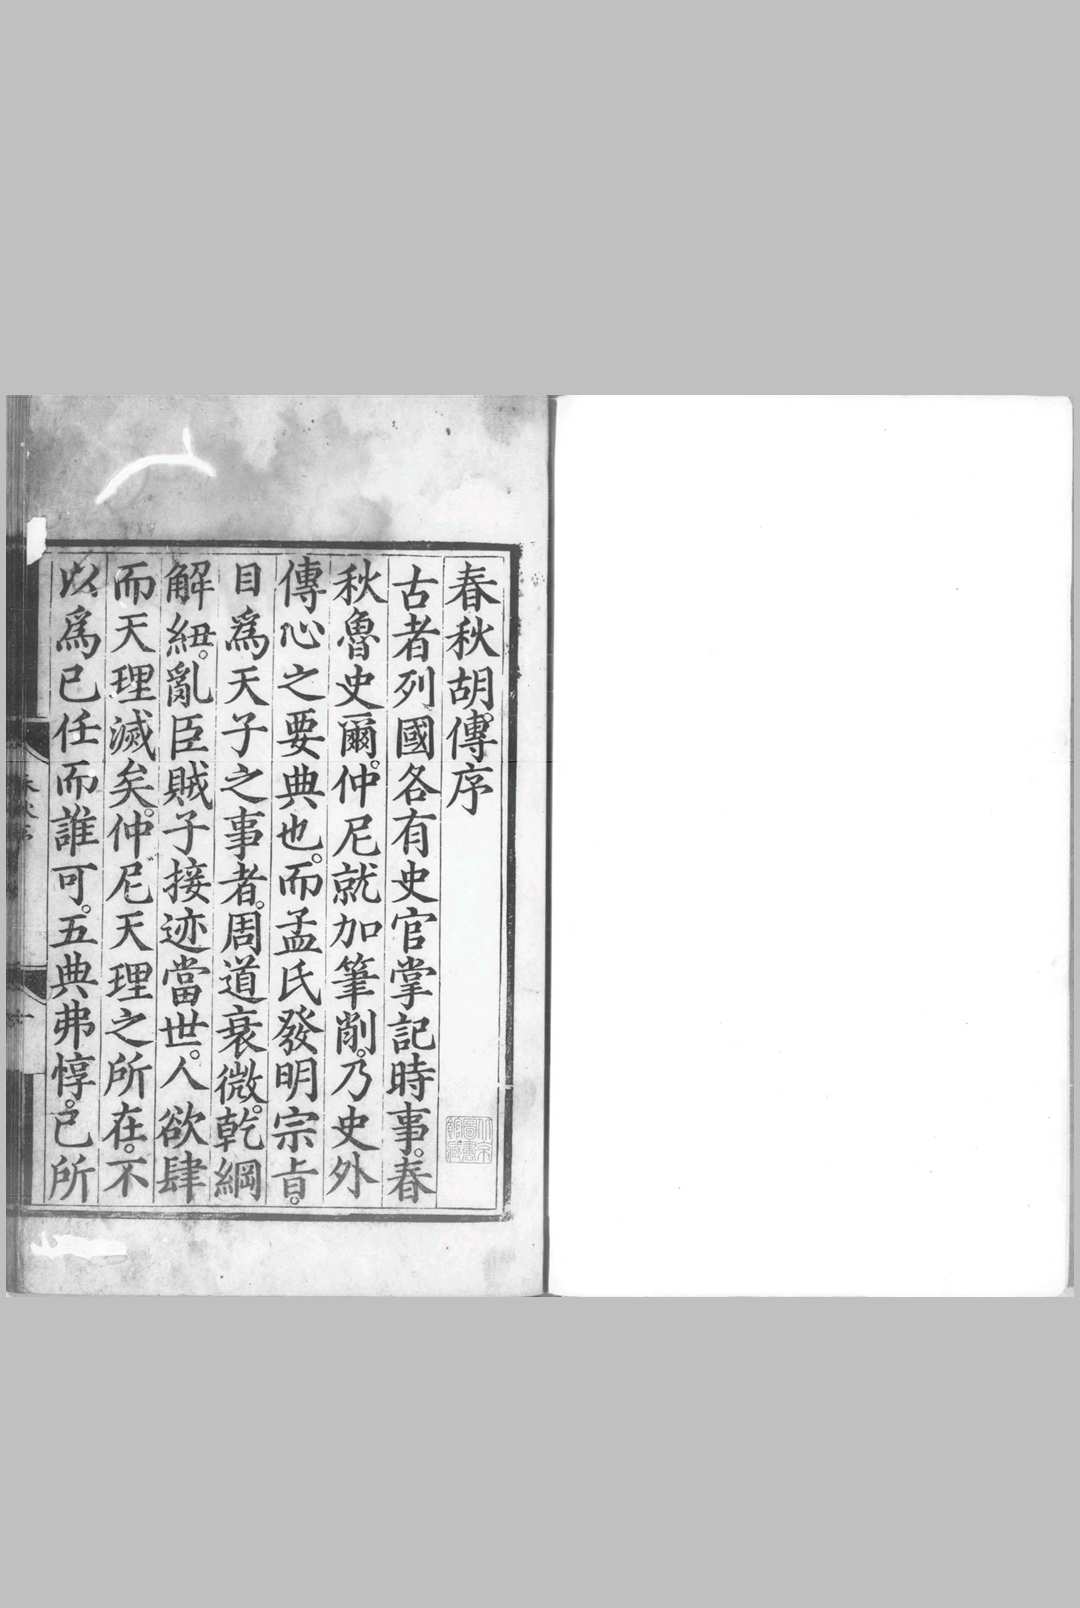 春秋胡傳序
古者列國各有史官掌記時事。春
秋魯史爾。仲尼就加筆削。乃史外
傳心之要典也。而孟氏發明宗㫖。
目爲天子之事者。周道衰微。乾綱
解紐。亂臣賊子接迹當世。人欲肆
而天理滅矣。仲尼天理之所在。不
以爲已任而誰可。五典弗惇。已所